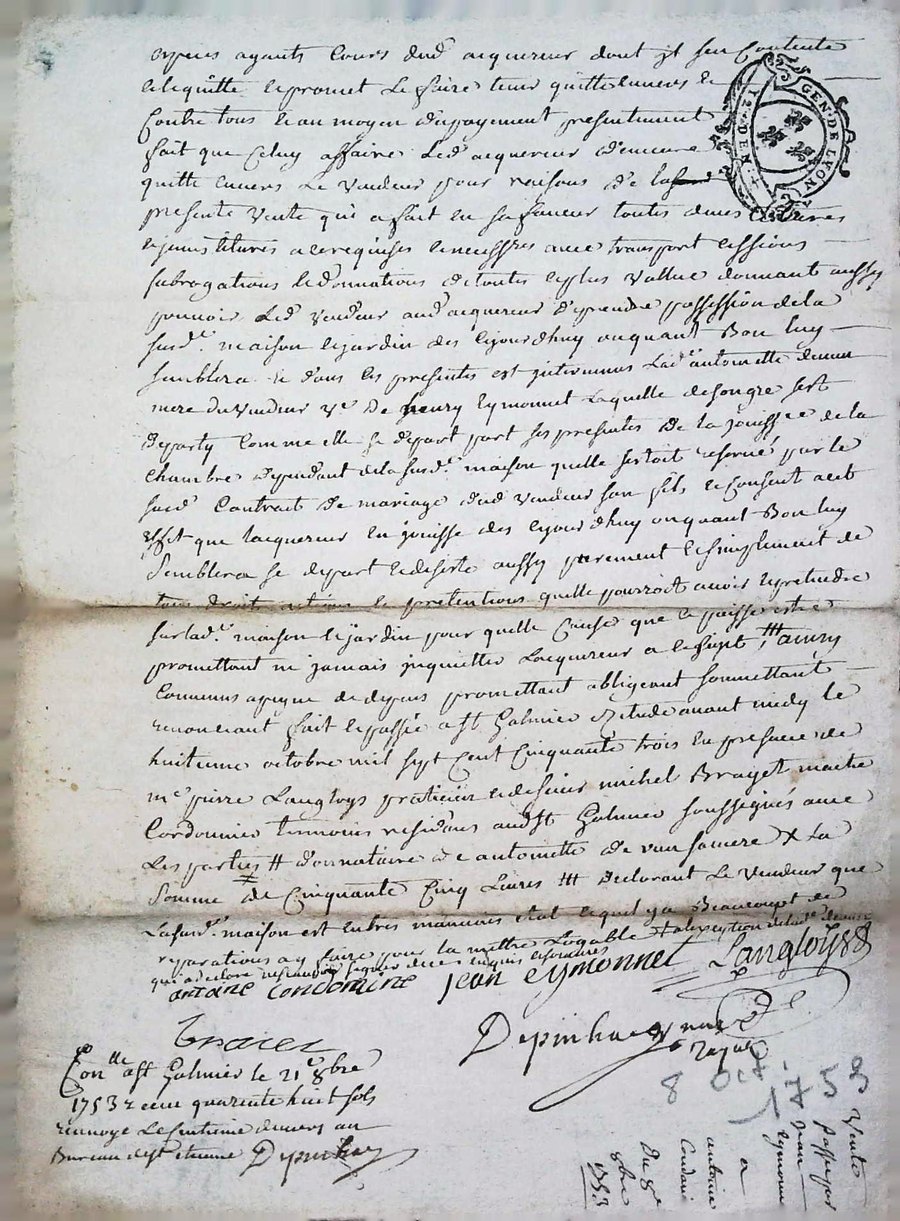 Especes ayants Cours dud acquereur dont jl sen Contente
et le quitte et promet Le faire tenir quitte envers et
Contre tous et au moyen du payement presentement
fait que Celuy affaire Led acquereur demeure
quitte envers Le vendeur pour raisons de la
presente vente qui a fait en sa faveur toutes
a ce requises et necessres avec transport cessions
subrogations et donnations de toutes et plus vallue donnant aussy
pouvoir Led vendeur aud acquereur de prendre possession de la
susd.e maison et jardin des ejourdhuy ou quant Bon luy
semblera et dans Les presentes est jntervenue Lad.e antoinette
mere du vendeur v.e De henry eymonnet Laquelle de son gre sest
departy Comme elle se depart par ses presentes de la jouissce de la
Chambre dependant de la susd.e maison quelle sestoit reservé par le
susd Contrat de mariage dud vendeur son fils et Consent a cet
effet que lacquereur en jouisse des ejourdhuy ou quant Bon luy
Semblera se depart et desiste aussy purement et simplement de
tous droit actions et pretentions quelle pourroit avoir et pretendre
sur lad.e maison et jardin pour quelle Cause que ce puisse estre
promettant ne jamais jnquietter Lacquereur a ce sujet /// ainsy
Convenu a peyne de depens promettant obligeant soumettant
renoncant fait et passé a st Galmier Etude avant midy le
huitieme octobre mil sept Cent Cinquante trois en presance de
m.e pierre Langloys praticien et de sieur michel Bruyet maitre
Cordonnier temoins residans aud st Galmier soussignés avec
Les parties # donnataire de antoinette de X La
Somme de Cinquante Cinq Livres /// Declarant Le vendeur que
La susd.e maison est en tres mauvais etat et quil y a Beaucoupt de
reparations a y faire pour la mettre Logable # a lexception de lad.e
qui a declaré ne scavoir signer de ce enquis et sommée
antoine Condamine Jean eymonnet Langloÿs
Depinhac
Con.lle a st Galmier le 21.e 8bre
1753 receu quarente huit sols
renvoye Le Centieme deniers au
Bureau de st etienne Depinhac
GEN. DE LYON
12. DEN.
8 Oct. 1753
Vente
passé par
Jean
eymonné
a
antoine
Condami
Du 8e
8bre
1753